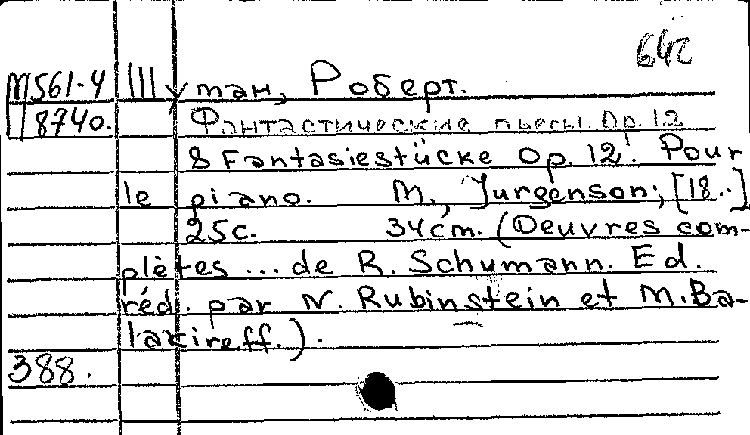 64с
М561-4 Шуман, Роберт.
8740. Фантастические пьесы. Ор. 12
8 Fantasiestücke Op. 12. Pour
le piano. M., Jurgenson, [18..]
25с. 34cm. (Oeuvres com-
plètes ... de R. Schumann. Ed.
réd. par N. Rubinstein et M. Ba-
lakireff.).
388.